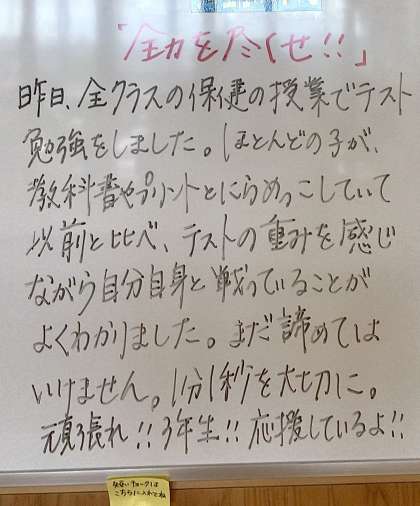 「全力を尽くせ!!」
昨日、全クラスの保健の授業でテスト
勉強をしました。ほとんどの子が、
教科書やプリントとにらめっこしていて
以前と比べ、テストの重みを感じ
ながら自分自身と戦っていることが
よくわかりました。まだ諦めては
いけません。1分1秒を大切に。
頑張れ!!3年生!!応援しているよ!!
短いチョークは
こちらに入れてね